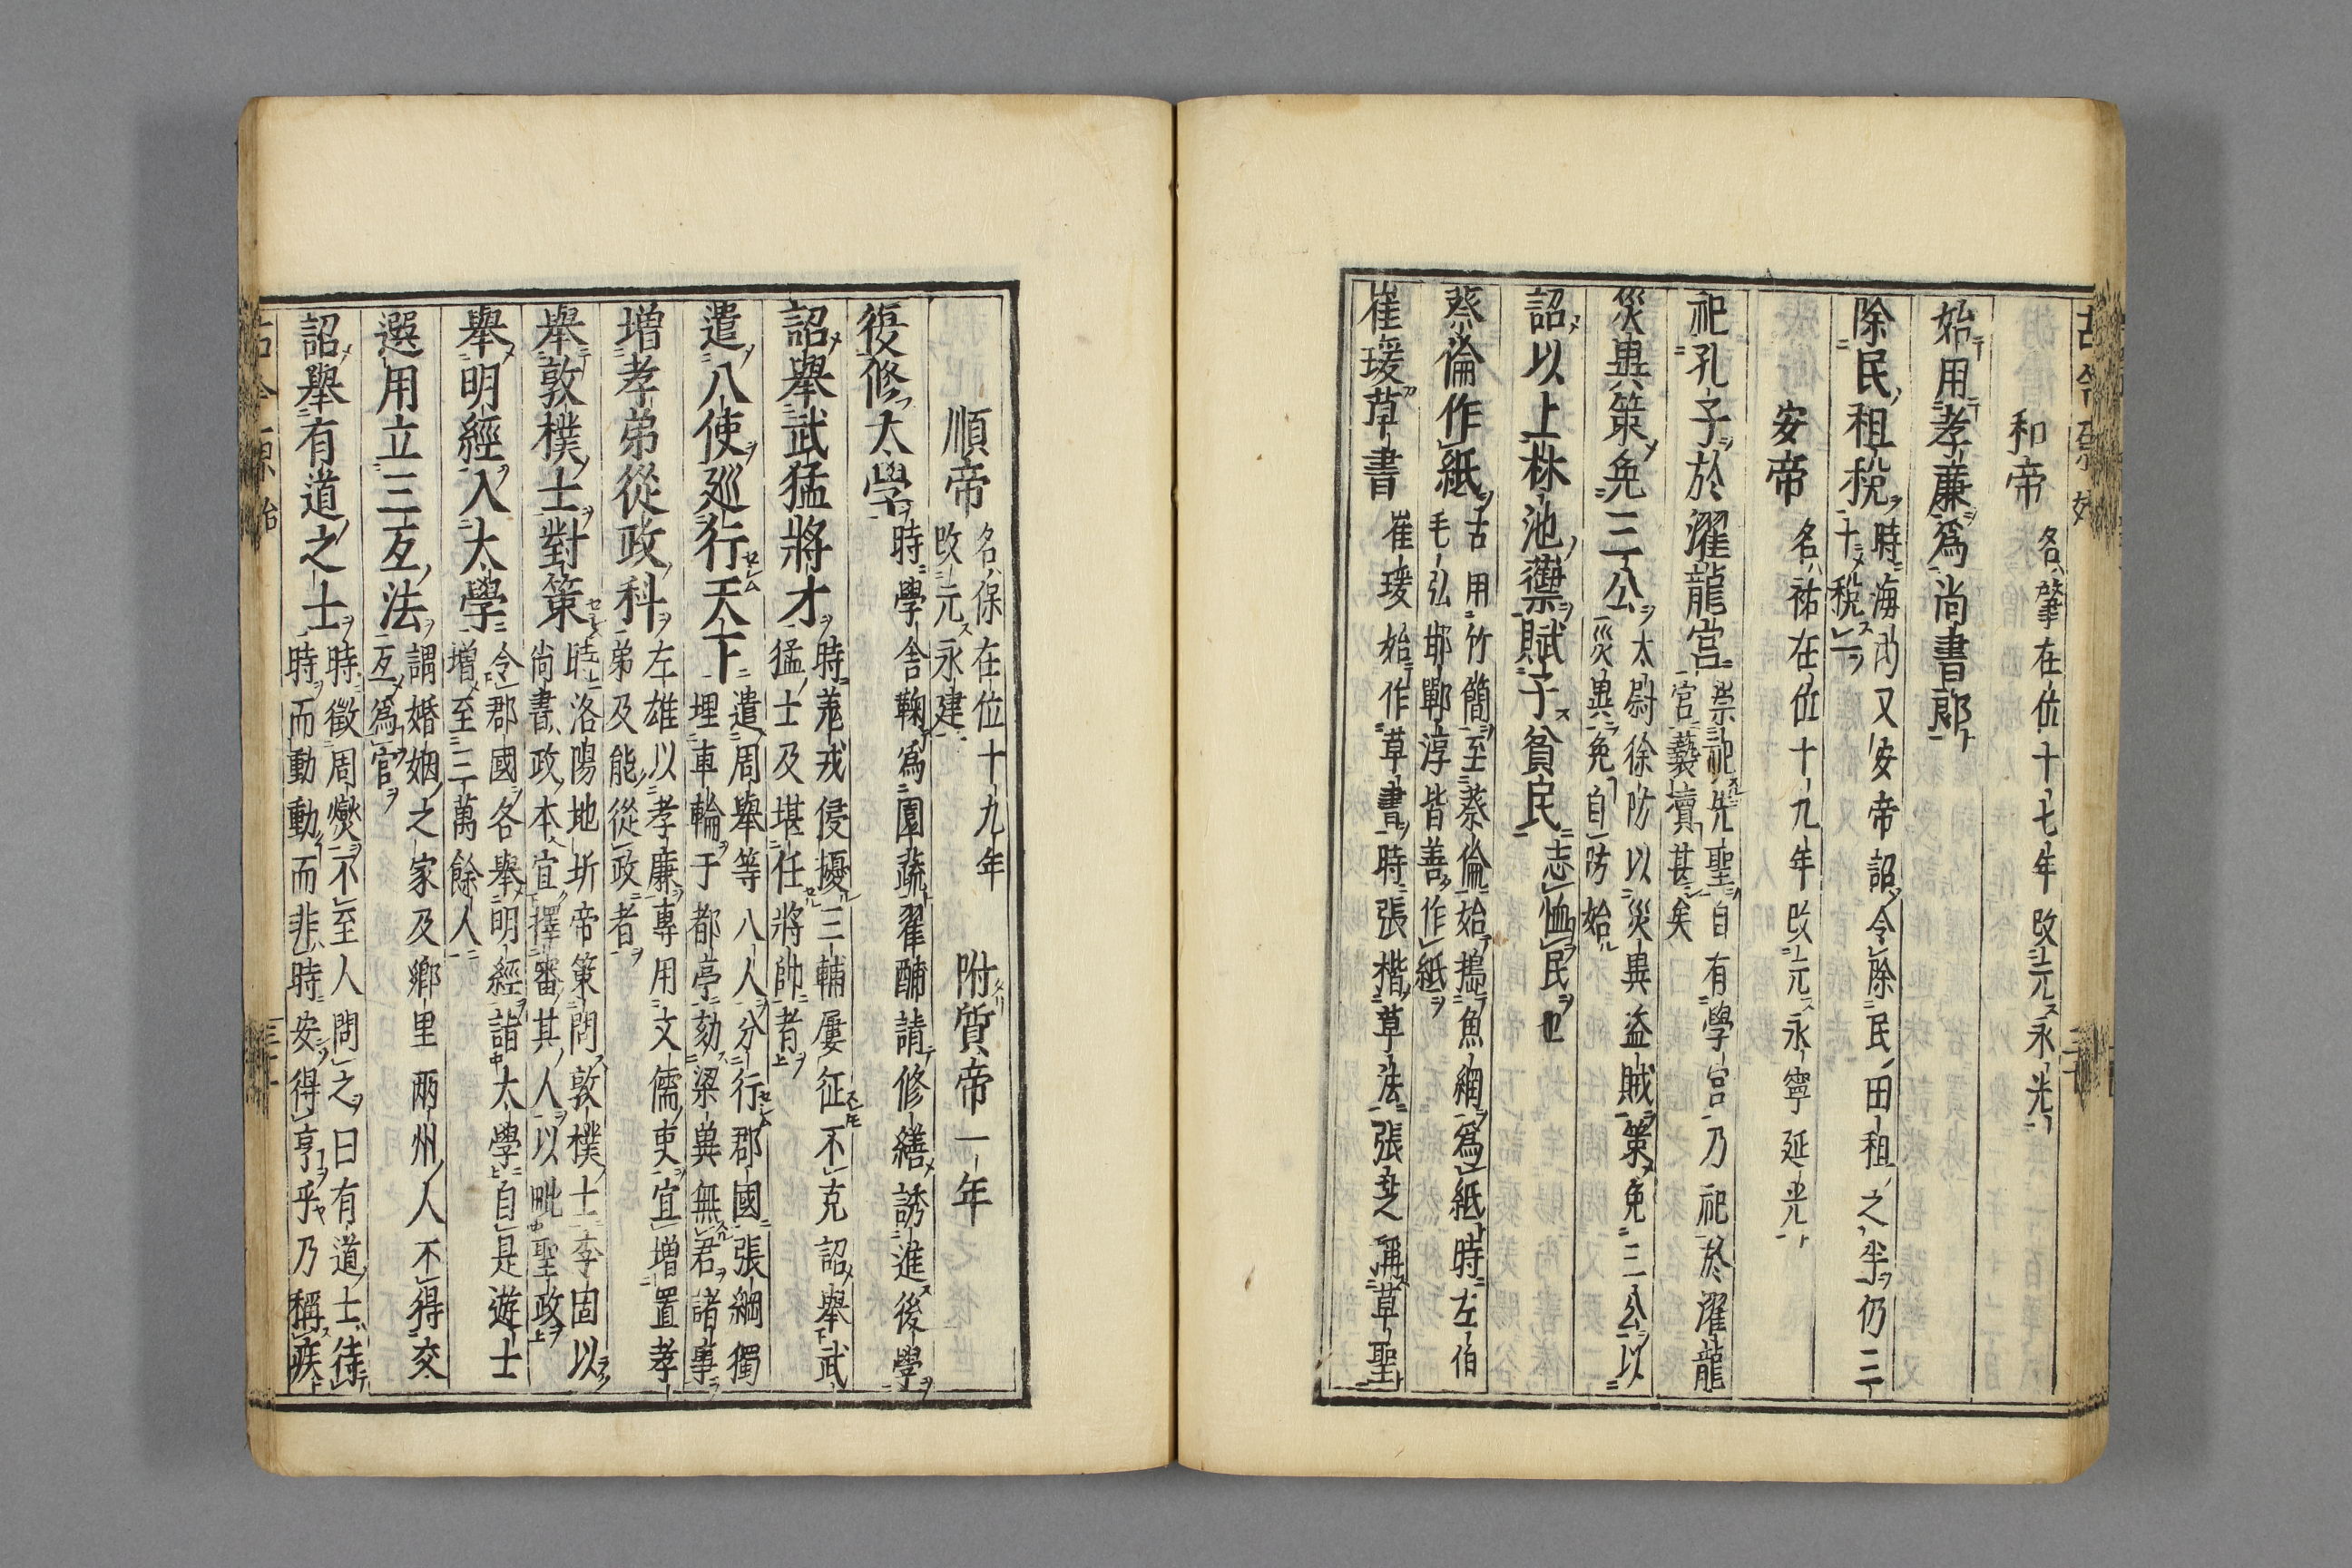 和帝 名肇在位十七年改元永光
始用孝廉爲尚書郎
除民租稅 時海內又安帝詔令除民田租之半仍三
十稅一
安帝 名祐在位十九年改元永寧延光
祀孔子於濯龍宮 崇祀先聖自有學宮乃祀於濯龍
宮褻瀆甚矣
災異策免三公 太尉徐防以災異盜賊策免三公以
災異免自防始
詔以上林池禦賦予貧民 志恤民也
蔡倫作紙 古用竹簡至蔡倫始搗魚網爲紙時左伯
毛弘邯鄲淳皆善作紙
崔瑗草書 崔瑗始作草書時張楷草法張芝稱草聖
順帝 名保在位十九年 附質帝一年
改元永建
復修太學 時學舍鞠爲園蔬翟酺請修繕誘進後學
詔舉武猛將才 時羌戎侵擾三輔屢征不克詔舉武
猛士及堪任將帥者
遣八使廵行天下 遣周舉等八人分行郡國張綱獨
埋車輪于都亭劾梁兾無君諸事
增孝弟從政科 左雄以孝廉專用文儒吏宜增置孝
弟及能從政者
舉敦樸士對策 時洛陽地圻帝策問敦樸士李固以
尚書政本宜擇審其人以毗聖政
舉明經入太學 令郡國各舉明經詣太學自是遊士
增至三萬餘人
選用立三互法 謂婚姻之家及鄉里兩州人不得交
互爲官
詔舉有道之士 時徵周燮不至人問之曰有道士待
時而動動而非時安得亨乎乃稱疾